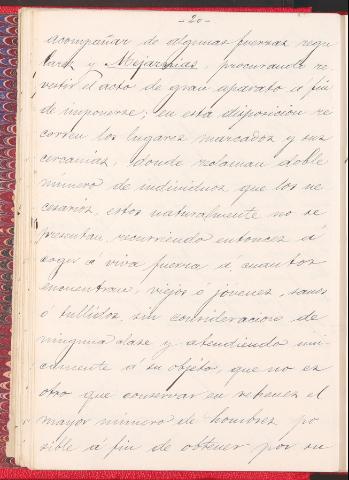 -20-
acompañar de algunas fuerzas regu
lares y Mejarnías, procurando re
vestir el acto de gran aparato á fin
de imponerse; en esta disposicion re
corren los lugares marcados y sus
cercanías, donde reclaman doble
número de individuos que los ne
cesarios, estos naturalmente no se
presentan, recurriendo entonces á
coger á viva fuerza á cuantos
encuentran, viejos ó jovenes, sanos
o tullidos, sin consideracion de
ninguna clase y atendiendo uni-
camente á su objeto, que no es
otro que conservar en rehenes el
mayor número de hombres po
sible á fin de obtener por su